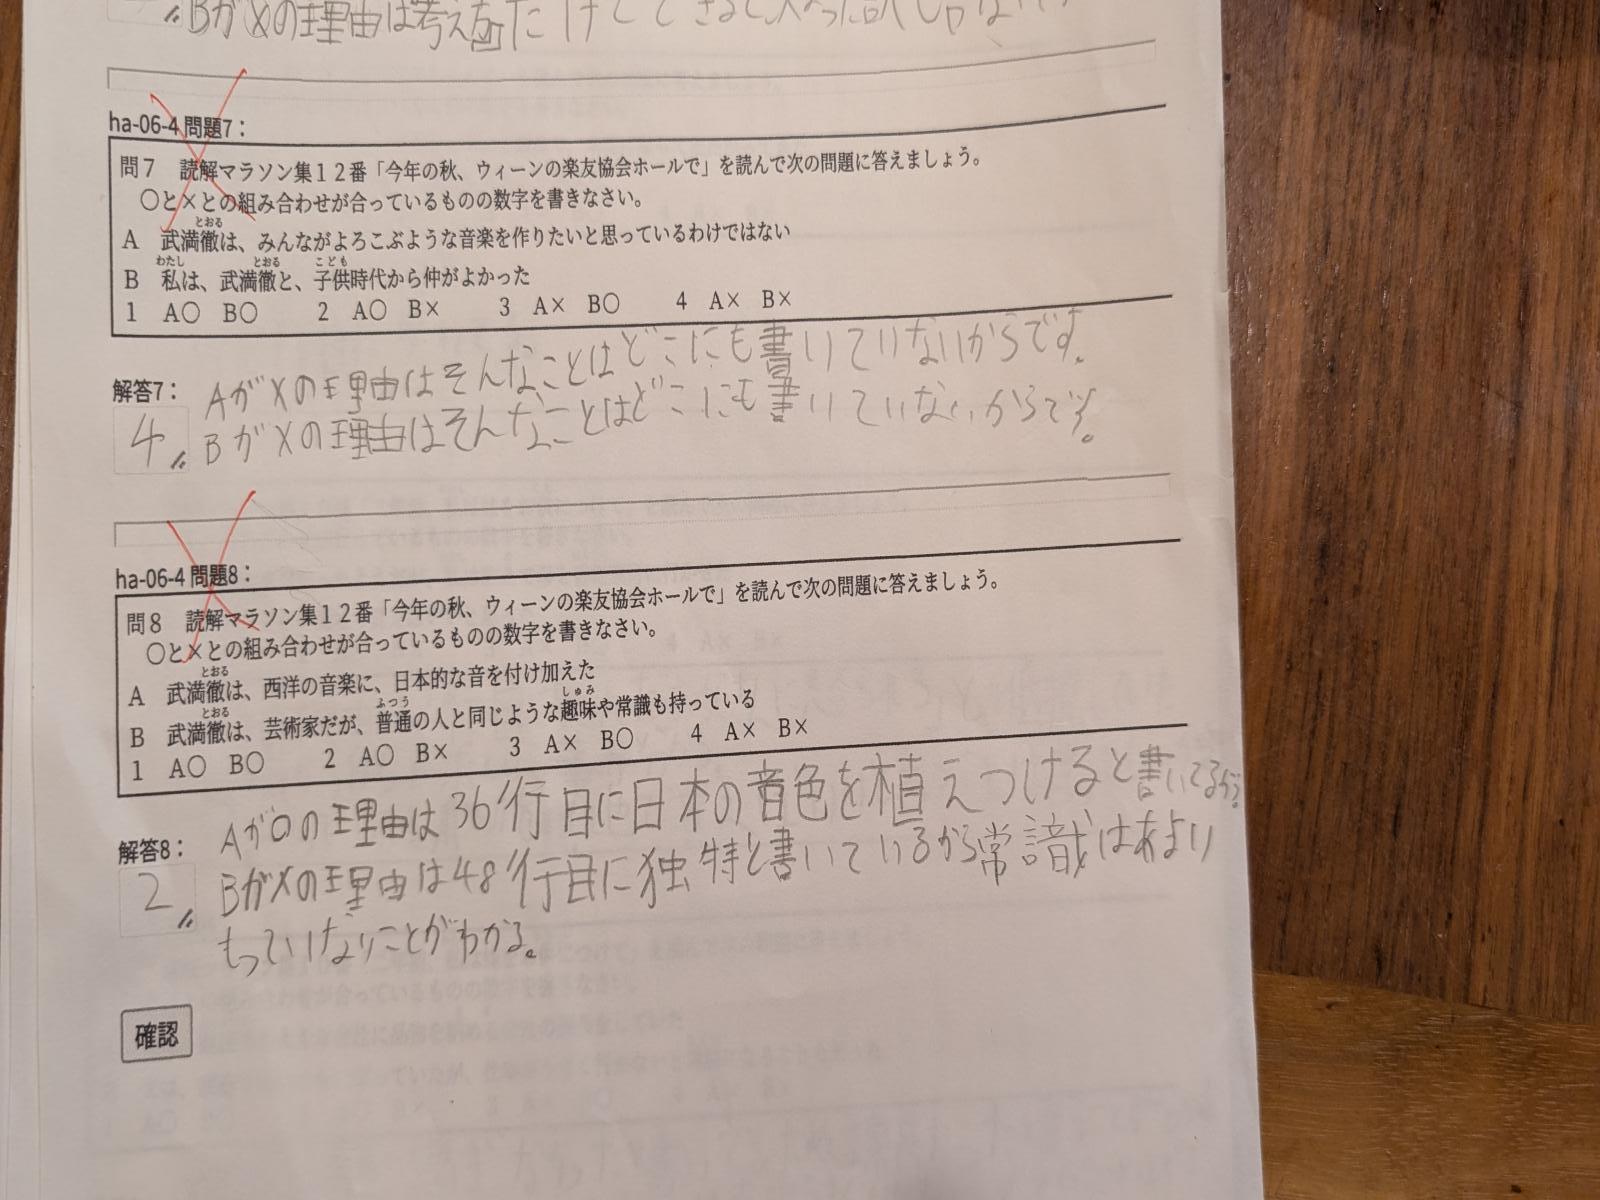 BがXの理由は考え
ha-06-4 問題7：
問7　読解マラソン集12番「今年の秋、ウィーンの楽友協会ホールで」を読んで次の問題に答えましょう。
○と×との組み合わせが合っているものの数字を書きなさい。
とおる
A　武満徹は、みんながよろこぶような音楽を作りたいと思っているわけではない
わたし　とおる　こども
B　私は、武満徹と、子供時代から仲がよかった
1　A○　B○　　2　A○　B×　　3　A×　B○　　4　A×　B×
解答7：
4
AがXの理由はそんなことはどこにも書いていないからです。
BがXの理由はそんなことはどこにも書いていないからです。
ha-06-4 問題8：
問8　読解マラソン集12番「今年の秋、ウィーンの楽友協会ホールで」を読んで次の問題に答えましょう。
○と×との組み合わせが合っているものの数字を書きなさい。
とおる
A　武満徹は、西洋の音楽に、日本的な音を付け加えた
とおる　ふつう　しゅみ
B　武満徹は、芸術家だが、普通の人と同じような趣味や常識も持っている
1　A○　B○　　2　A○　B×　　3　A×　B○　　4　A×　B×
解答8：
2
Aが○の理由は36行目に日本の音色を植えつけると書いてるから。
BがXの理由は48行目に独特と書いているから常識はあまり
もっていないことがわかる。
確認